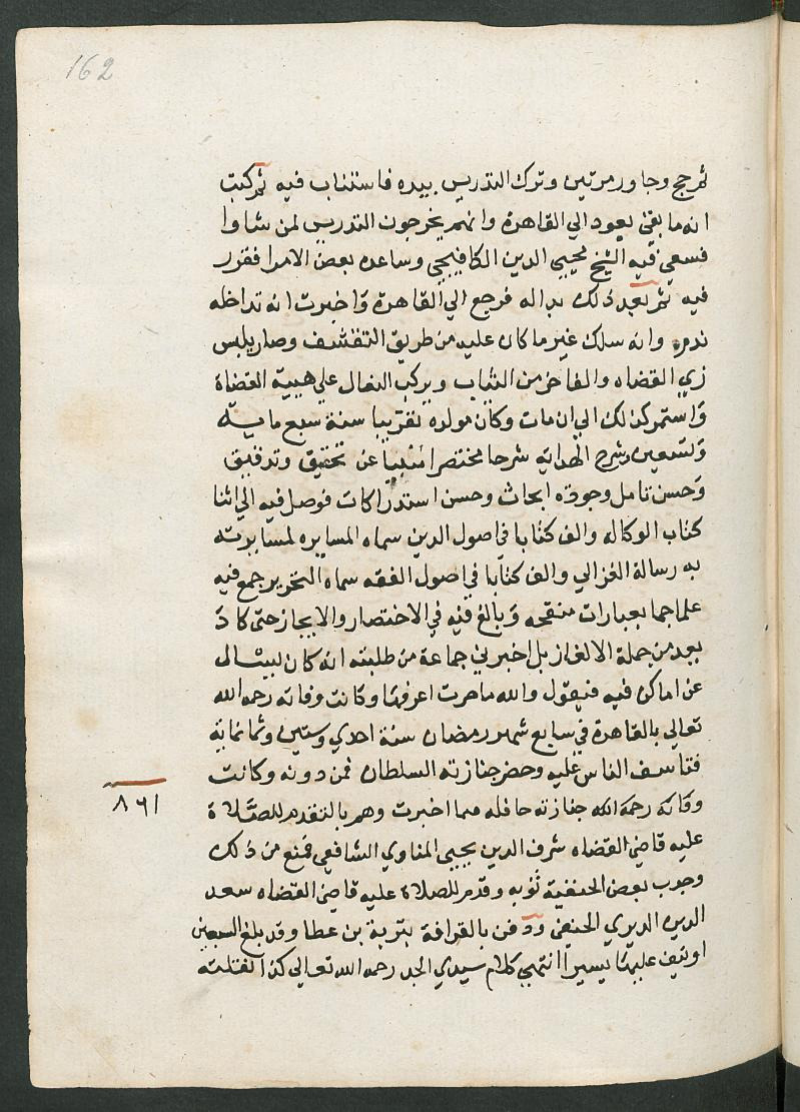 162
ثم حج وجاور مرتين وترك التدريس بيده فاستناب فيه ثم كتب
انه ما بقي يعود الي القاهرة وانهم يخرجون التدريس لمن شاوا
فسعي فيه الشيخ محيي الدين الكافيجي وساعده بعض الامرا فقرر
فيه ثم بعد ذلك بداله فرجع الي القاهرة واخبرت انه تداخله
ندم وانه سلك غير ما كان عليه من طريق التقشف وصار يلبس
زي القضاه والفاخر من الثياب ويركب البغال علي هيية القضاة
واستمر كذلك الي ان مات وكان مولده تقريبا سنة سبع ماية
وتسعين وشرح الهدايه شرحا مختصرا منبيا عن تحقيق وتدقيق
وحسن تامل وجوده ابحاث وحسن استدراكات فوصل فيه الي اثنا
كتاب الوكاله والف كتابا في اصول الدين سماه المسايره لمسايرته
به رسالة الغزالي والف كتابا في اصول الفقه سماه التحرير جمع فيه
علما جما بعبارات منقحه وبالغ فيه في الاختصار والايجاز حتي كاد
يعد من جملة الالغاز بل اخبرني جماعة من طلبته انه كان ليسال
عن اماكن فيه فيقول والله ما صرت اعرفها وكانت وفاته رحمه الله
تعالي بالقاهرة في سابع شهر رمضان سنة احدي وستين وثمانماية
فتاسف الناس عليه وحضر جنازته السلطان فمن دونه وكانت
٨٦١
وفاته رحمه الله جنازته حافله مما اخبرت وهم بالتقدم للصلاة
عليه قاضي القضاه شرف الدين يحيي المناوي الشافعي فمنع من ذلك
وجذب بعض الحنفية ثوبه وقدم للصلاة عليه قاضي القضاه سعد
الدين الديري الحنفي ودفن بالقرافة بتربة بن عطا وقد بلغ السبعين
او نيف عليها يسيرا انتهي كلام سيدي الجد رحمه الله تعالي كذا نقلته